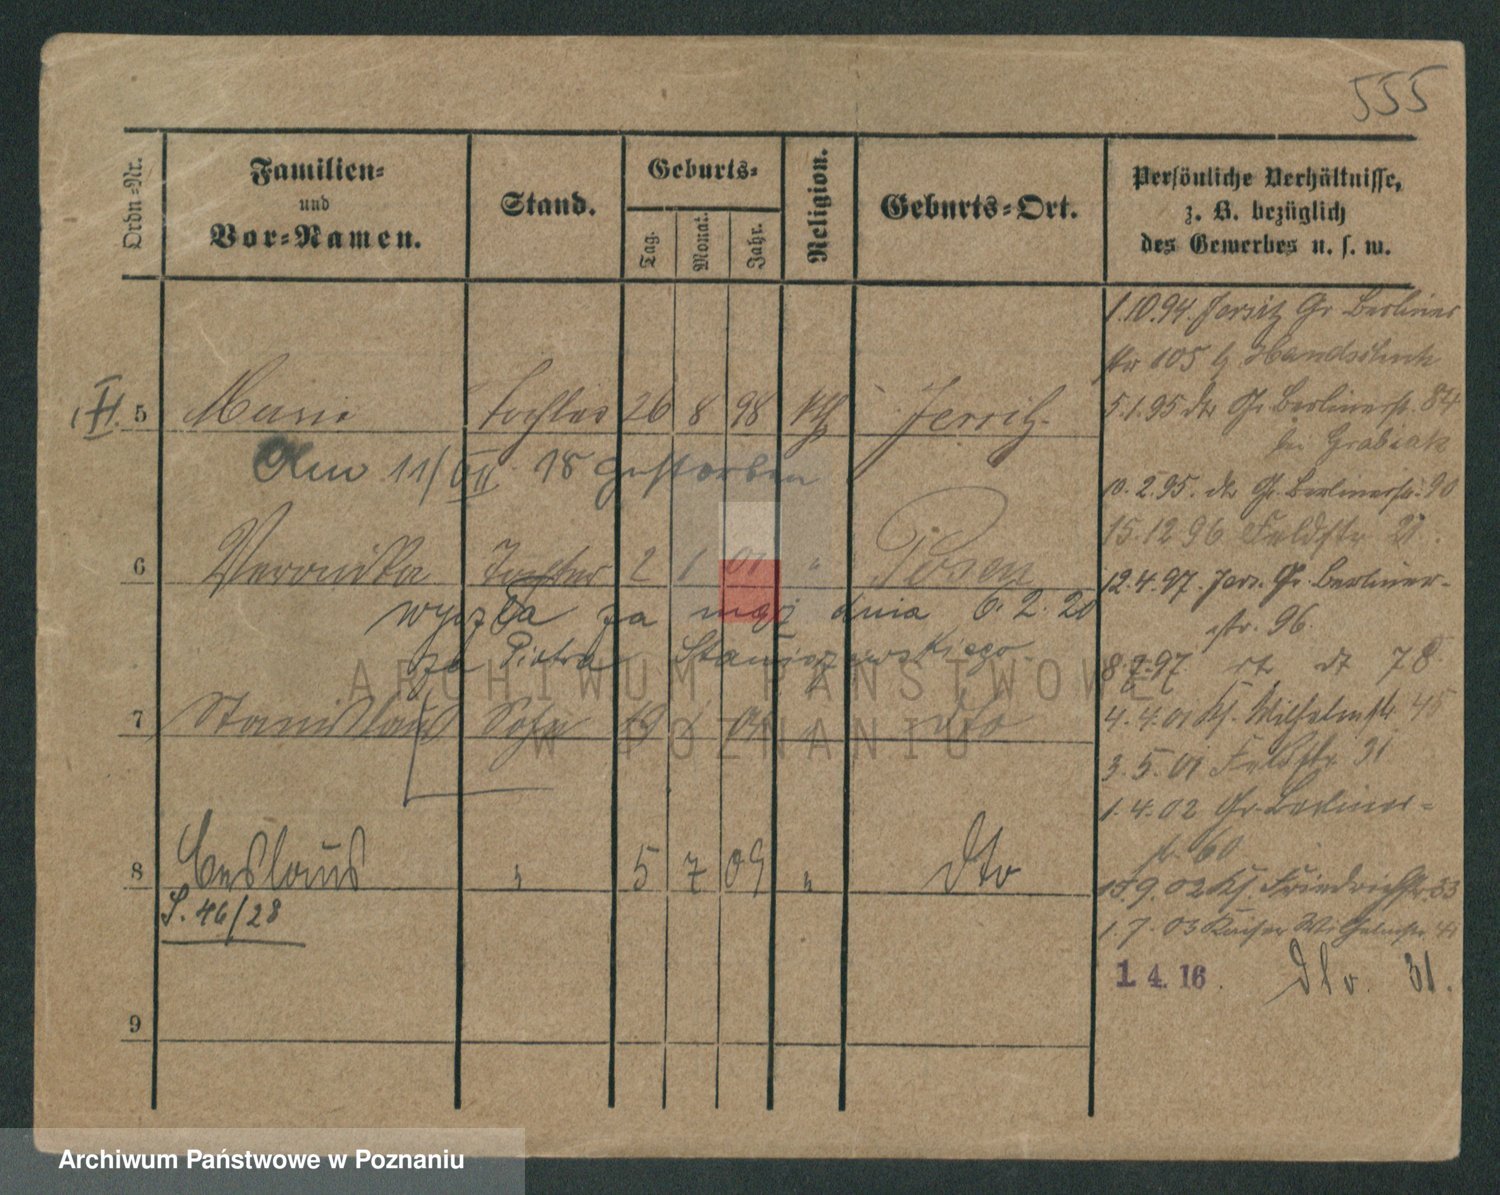 555
Ordn-Nr.
Familien-
und
Vor-Namen.
Stand.
Geburts-
Tag.
Monat.
Jahr.
Religion.
Geburts-Ort.
Persönliche Verhältnisse,
z. B. bezüglich
des Gewerbes u. s. w.
1.10.94. Jersitz Gr Berliner
str 105 b
5 Marie Tochter 26 8 98 kth Jersitz.
5.1.95 dto Gr. Berlinerstr. 84
bei Grabiak
Am 11/VII. 18 gestorben
10.2.95. dto Gr. Berlinerstr. 90
15.12 96 Feldstr 21.
6 Veronika Tochter 2 1 01 " Posen
12.4.97. Jers. Gr. Berliner-
str. 96.
wyszła za mąż dnia 6. 2. 20
za Piotra Staniszewskiego
78
7 Stanislaus Sohn dto
4.4.01 Ks. Wilhelmstr 45
3.5.01 Feldstr 31
1.4.02 Gr. Berliner-
str. 60
8 Ceslaus " 5 7 09 " dto
15.9.02 Ks. Friedrichstr. 33
S. 46/28
1.7.03 Kaiser Wilhelmstr. 41
1. 4. 16. dto. 31.
9
ARCHIWUM PAŃSTWOWE
W POZNANIU
Archiwum Państwowe w Poznaniu